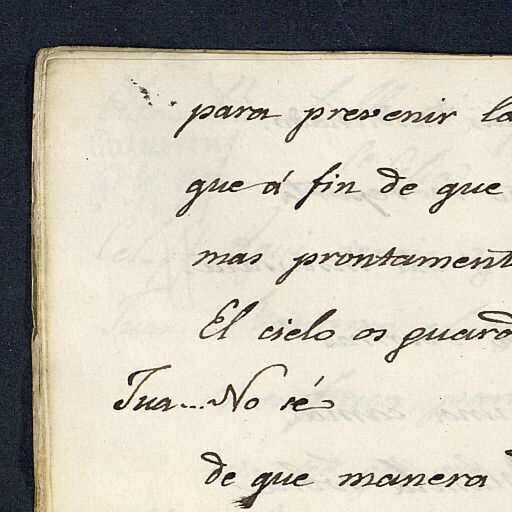 para prevenir la
que á fin de que
mas prontament
El cielo os guard
Jua... No sé
de que manera